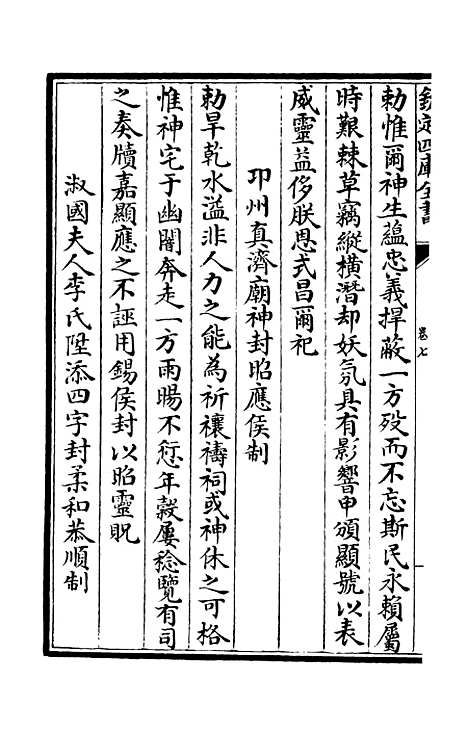 欽定四庫全書
卷七
勅惟爾神生蘊忠義捍蔽一方歿而不忘斯民永賴屬
時艱棘草竊縱橫潛却妖氛具有影響申頒顯號以表
威靈益侈朕恩式昌爾祀
卭州真濟廟神封昭應侯制
勅旱乾水溢非人力之能為祈禳禱祠或神休之可格
惟神宅于幽闇奔走一方雨暘不愆年穀屢稔覽有司
之奏牘嘉顯應之不誣用錫侯封以昭靈貺
淑國夫人李氏陞添四字封柔和恭順制